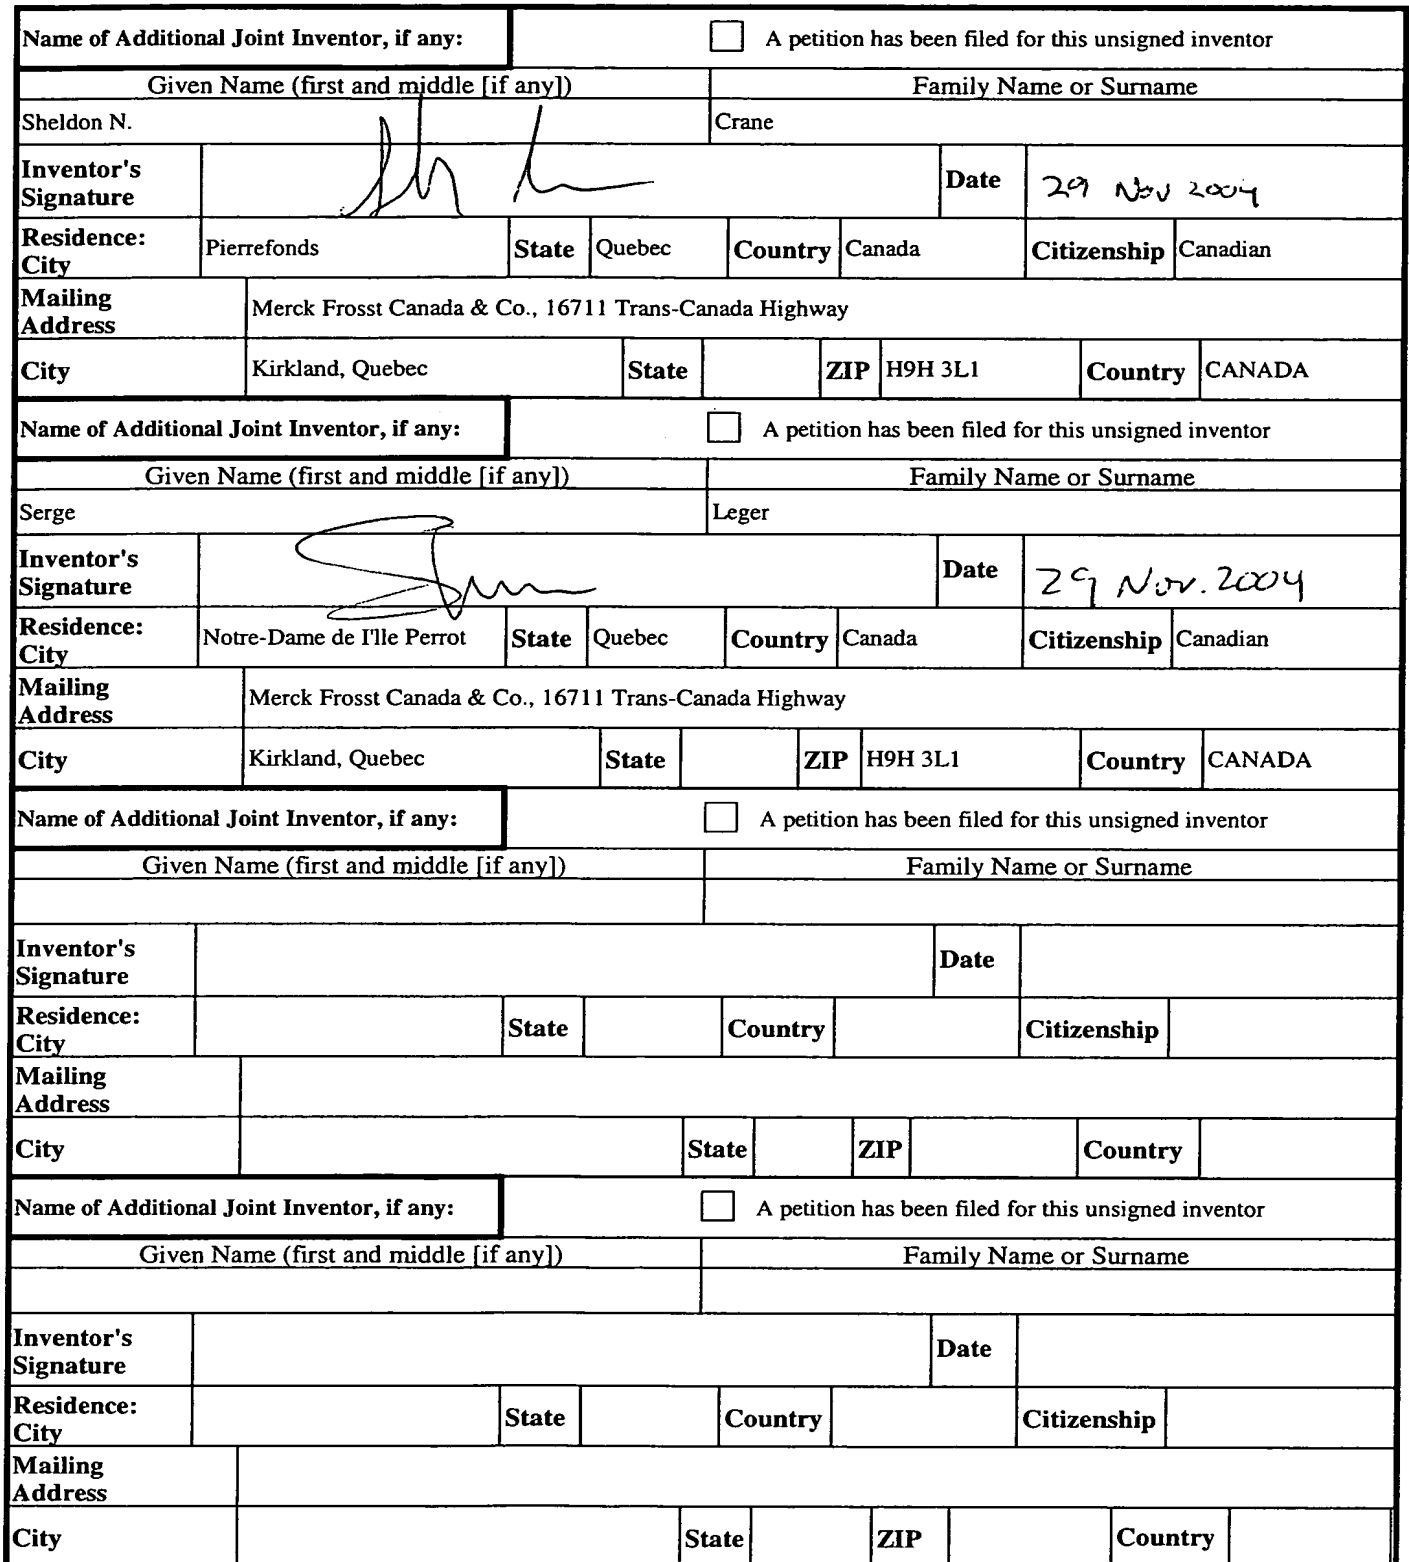 Name of Additional Joint Inventor, if any: A petition has been filed for this unsigned inventor
Given Name (first and middle [if any]) Family Name or Surname
Sheldon N. Crane
Inventor's Signature Date 29 Nov 2004
Residence: City Pierrefonds State Quebec Country Canada Citizenship Canadian
Mailing Address Merck Frosst Canada & Co., 16711 Trans-Canada Highway
City Kirkland, Quebec State ZIP H9H 3L1 Country CANADA
Name of Additional Joint Inventor, if any: A petition has been filed for this unsigned inventor
Given Name (first and middle [if any]) Family Name or Surname
Serge Leger
Inventor's Signature Date 29 Nov. 2004
Residence: City Notre-Dame de I'lle Perrot State Quebec Country Canada Citizenship Canadian
Mailing Address Merck Frosst Canada & Co., 16711 Trans-Canada Highway
City Kirkland, Quebec State ZIP H9H 3L1 Country CANADA
Name of Additional Joint Inventor, if any: A petition has been filed for this unsigned inventor
Given Name (first and middle [if any]) Family Name or Surname
Inventor's Signature Date
Residence: City State Country Citizenship
Mailing Address
City State ZIP Country
Name of Additional Joint Inventor, if any: A petition has been filed for this unsigned inventor
Given Name (first and middle [if any]) Family Name or Surname
Inventor's Signature Date
Residence: City State Country Citizenship
Mailing Address
City State ZIP Country